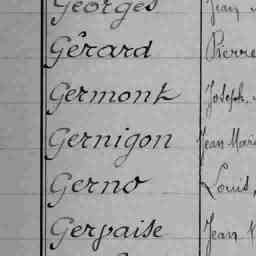 Georges Jean
Gérard Pierre
Germont Joseph
Gernigon Jean Marie
Gerno Louis
Gervaise Jean